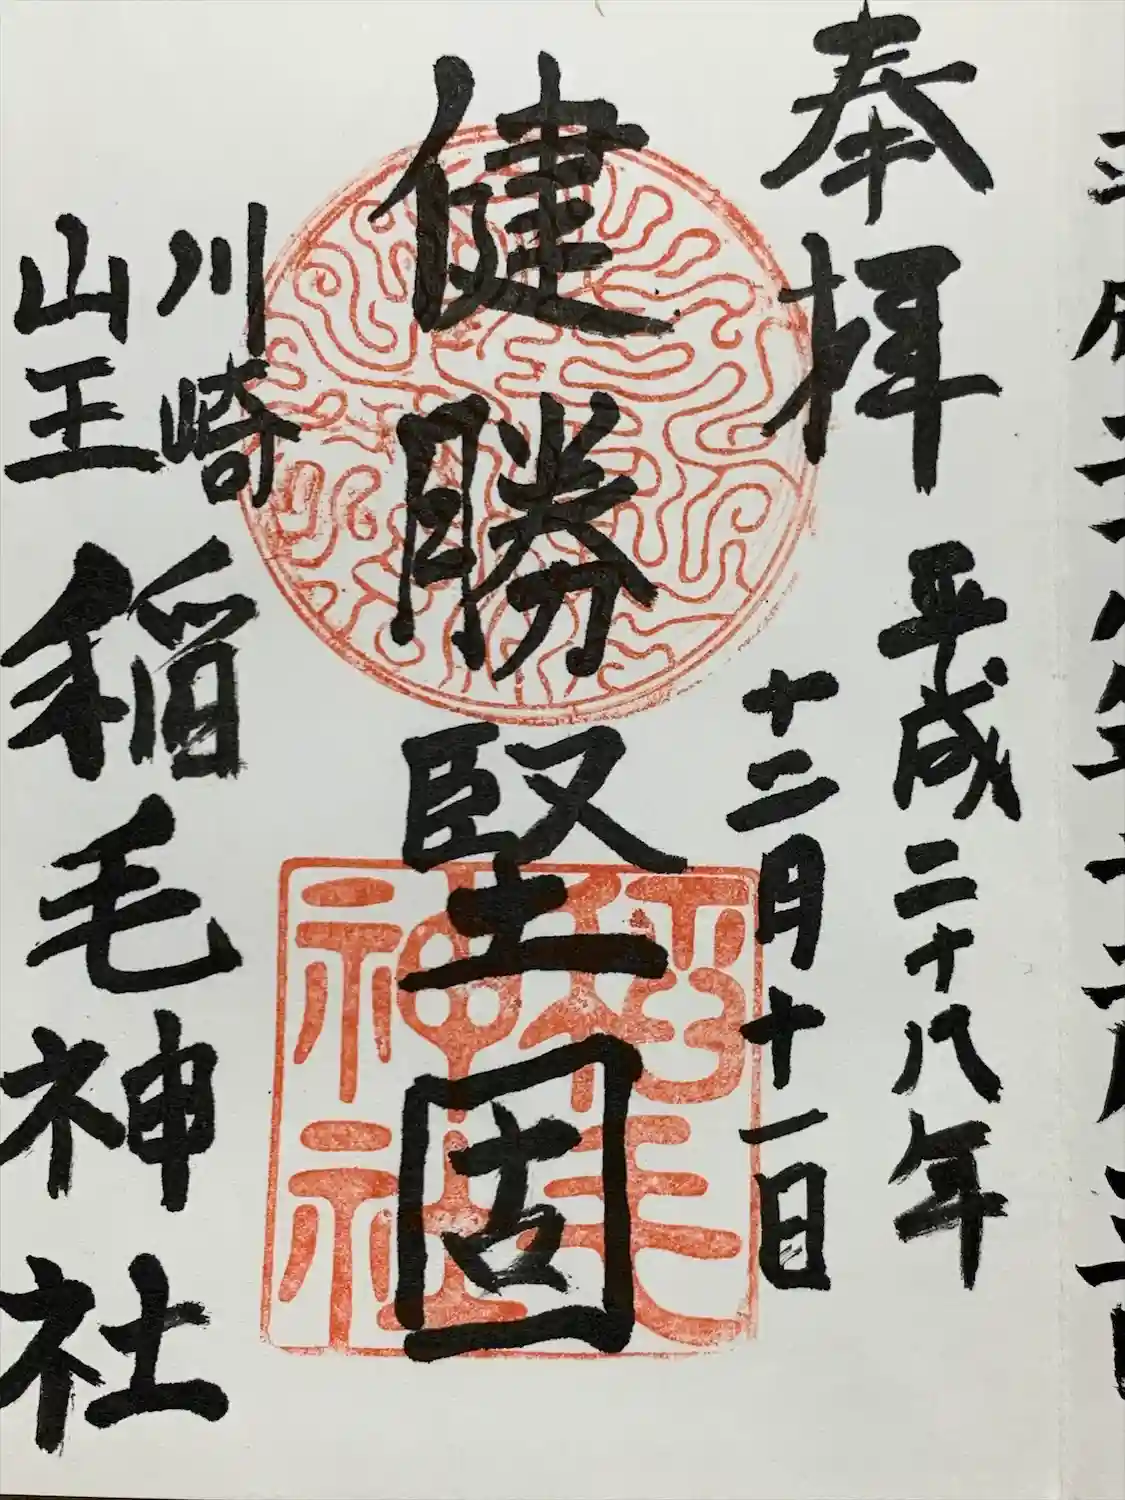 奉拝
平成二十八年
十二月十一日
健勝堅固
川崎
山王
稲毛神社
稲毛
神社